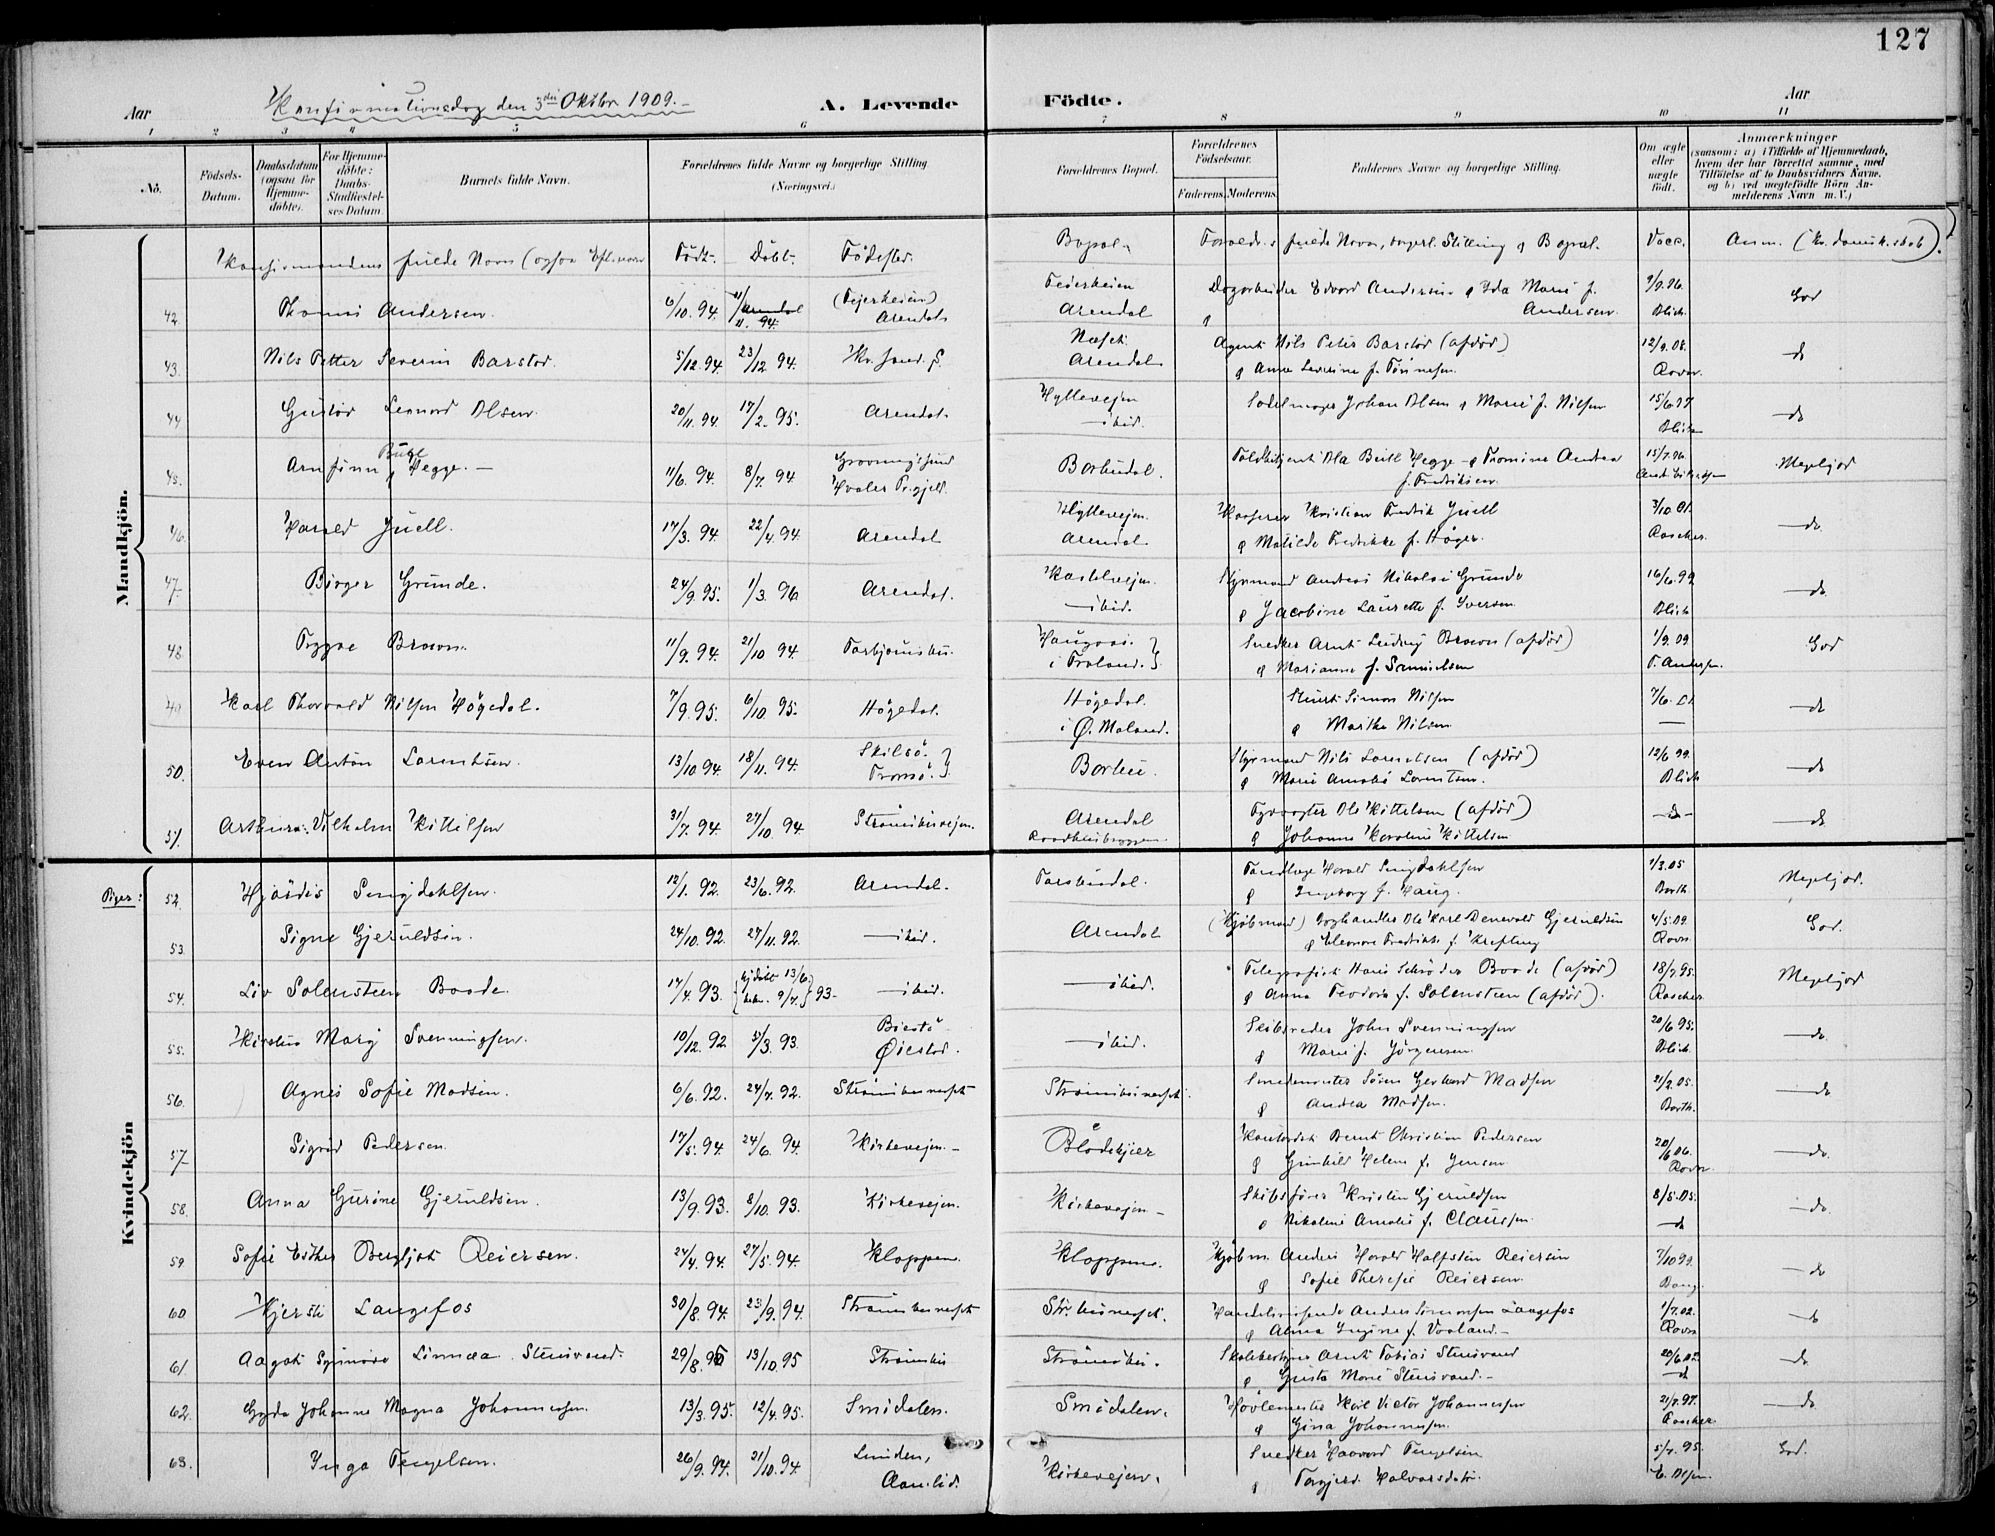 127
Konfirmationsdag den 3die Oktbr 1909.
A. Levende Födte.
Aar Aar
1 2 3 4 5 6 7 8 9 10 11
No.
Födsels-Datum.
Daabsdatum (ogsaa for Hjemme-döbte).
For Hjemme-döbte: Daabs-Stadfæstel-ses Datum.
Barnets fulde Navn.
Forældrenes fulde Navne og borgerlige Stilling. (Næringsvei.)
Forældrenes Bopæl.
Forældrenes Födselsaar.
Faderens. Moderens.
Faddernes Navne og borgerlige Stilling.
Om ægte eller uægte födt.
Anmærkninger
(saasom: a) i Tilfælde af Hjemmedaab, hvem der har forrettet samme, med Tilföielse af to Daabsvidners Navne. og b) ved uægtefödte Börn An-melderens Navn m. V.)
Mandkjön.
Konfirmandens fulde Navn (ogsaa Eft.navn Födt. Döbt. Födested. Bopæl. Foraeldr.s fulde Navn, borgerl. Stilling og Bopæl. Vacc. Anm. (Kr.domsk.skab).
42. Thomas Andersen. 6/10 94. Arendal 11. 94. (Tejerheien) Arendal. Teierheien Arendal Dagarbeider Edvard Andersen og Ida Marie f. Andersen. 9/9.96. Blich. God
43. Nils Petter Severin Barstad. 5/12. 94. 23/12. 94. Kr.sand. S. Næsset. Arendal Agent Nils Peter Barstad (afdöd) og Anna Severine f. Tönnesen. 12/9.08. Rovn. do
44 Gustav Leonard Olsen. 20/11. 94 17/2. 95. Arendal. Hyllevejen ibid. Sadelmager Johan Olsen og Marie f. Nilsen 15/6.97 Blich do
45. Arnfinn Bull Hegge. 11/6. 94. 8/7. 94 Hvaler Pr.gjeld. Barbudal. Toldbetjent Ola Bull Hegge og Thomine Andrea f. Fredriksen. 15/7.96. Megetgod
46. Harald Juell. 17/3. 94. 22/4. 94 Arendal Hyllevejen. Arendal Kasserer Kristian Fredrik Juell og Matilde Fredrikke f. Höyer. 3/10 01. Roscher. do
47. Birger Grunde. 24/9. 95. 1/3. 96 Arendal. Kastelvejen. ibid. Styrmand Andreas Nikolai Grunde og Jacobine Laurette f. Iversen. 16/6.99 Blich do
48 Trygve Braavn. 11/9. 94. 21/10 94. Torbjörnsbu. Haugaas. i Froland. Snedker Arnt Ludvig Braavn (afdöd) og Marianne f. Samuelsen 1/9.09. T. Andersen. God
49 Karl Thorvald Nilsen Högedal. 7/9. 95. 6/10. 95. Högedal. Högedal. i Ö. Moland. Simon Nilsen og Marthe Nilsen 7/6. 01. do
50. Even Anton Lorentsen. 13/10 94. 18/11. 94. Skilsö. Tromö. Barbu. Styrmand Nils Lorentsen (afdöd) og Marie Amalie Lorentsen. 12/6 99. Blich do
51. Arthur Vilhelm Kittilsen 31/7. 94. 27/10. 94 Strömsbuvejen. Arendal Raadhusbryggen. Fyrvogter Ole Kittelsen (afdöd) og Johanne Karoline Kittelsen do do
Piger:
Kvindekjön
52. Hjördis Smigdahlsen. 12/1. 92. 23/6. 92. Arendal. Torsbudal. Tandlæge Harald Smigdahlsen og Ingeborg f. Haug. 1/3.05 Barth. Megetgod.
53. Signe Gjeruldsen. 24/10. 92. 27/11. 92. ibid. Arendal (Kjöbmand) Ole Karl Denevold Gjeruldsen og Eleonore Fredrikke f. Krefting 4/5.09. Rovn. God.
54. Liv Salensteen Baade. 17/4. 93. hj.döbt 13/6. bekr. 9/7. 93. ibid. ibid. Telegrafist Hans Schröder Baade (afdöd) og Anna Teodora f. Salensteen (afdöd). 18/7.95. Roscher Megetgod
55. Kirstine Mary Svenningsen. 10/12. 92 5/3. 93. Biestö Öiestad. ibid. Skibsreder John Svenningsen og Marie f. Jörgensen 20/6 95. Blich. do
56. Agnes Sofie Madsen. 6/6. 92. 24/7. 92. Strömsbuneset Strömsbuneset. Smedemester Sören Gerhard Madsen og Andrea Madsen. 21/2. 05. Barth. do
57. Sigrid Pedersen. 17/5. 94. 24/6. 94. Kirkevejen. Blödekjær Kontorist Bernt Christian Pedersen og Gunhild Helene f. Jensen 20/6 06. Rovn do
58. Anna Gurine Gjeruldsen. 13/9. 93. 8/10. 93. Kirkevejen. Kirkevejen Skibsförer Kristen Gjeruldsen og Nikoline Amalie f. Claussen. 8/5.05. do do
59 Sofie Esther Bergljot Reiersen. 24/4. 94. 27/5. 94. Kloppene. Kloppene. Kjöbm. Anders Harald Halfstein Reiersen og Sofie Therese Reiersen. 7/10 99. Bang. do
60. Kjersti Langefos 30/8. 94. 23/9. 94. Strömsbuneset Str.buneset. Handelsreisende Anders Simonsen Langefos og Alma Ingine f. Vaaland. 1/7. 02. Rovn do
61. Aagot Synnöve Linnæa Stensvand. 29/8. 95 13/10 95 Strömsbu Strömsbu. Skolebestyrer Arnt Tobias Stensvand og Gusta Marie Stensvand. 20/6.02. do do
62. Gyda Johanne Magna Johannessen. 13/3. 95. 12/4. 95. Smidalen. Smidalen. Hövlemester Karl Victor Johannessen og Gina Johannessen. 21/7.97. Roscher do
63. Inga Tengelsen. 26/9. 94. 21/10. 94. Linden, Aamlid. Kirkevejen. Snedker Haavard Tengelsen og Torgjerd Halvorsdatter. 5/7. 95. E. Olsen. God.